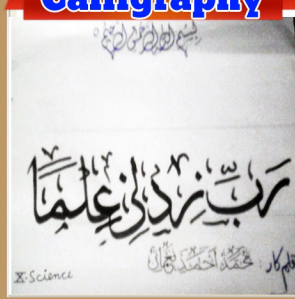 Calligraphy
بسم الله الرحمن الرحيم
رَبِّ زِدْنِي عِلْمًا
قلم کار: محمد احمد نعمان
X-Science